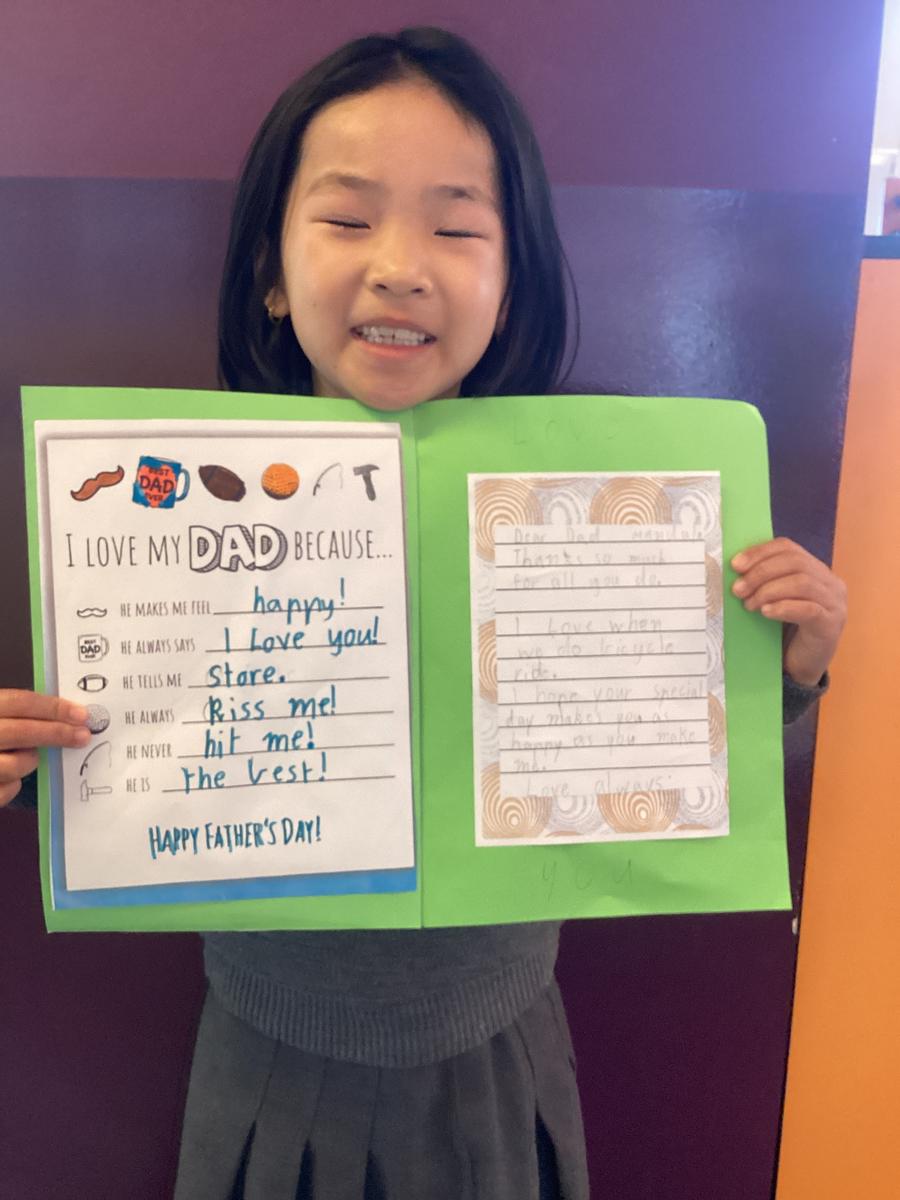 BEST
DAD
EVER
I LOVE MY DAD BECAUSE...
HE MAKES ME FEEL happy!
BEST
DAD
HE ALWAYS SAYS I Love you!
HE TELLS ME store.
HE ALWAYS Kiss me!
HE NEVER hit me!
HE IS the best!
HAPPY FATHER'S DAY!
LOVE
Dear Dad
Thanks so much
for all you do.
I Love when
we do
ride.
I hope your special
day makes you as
happy as you make
me.
Love always
you